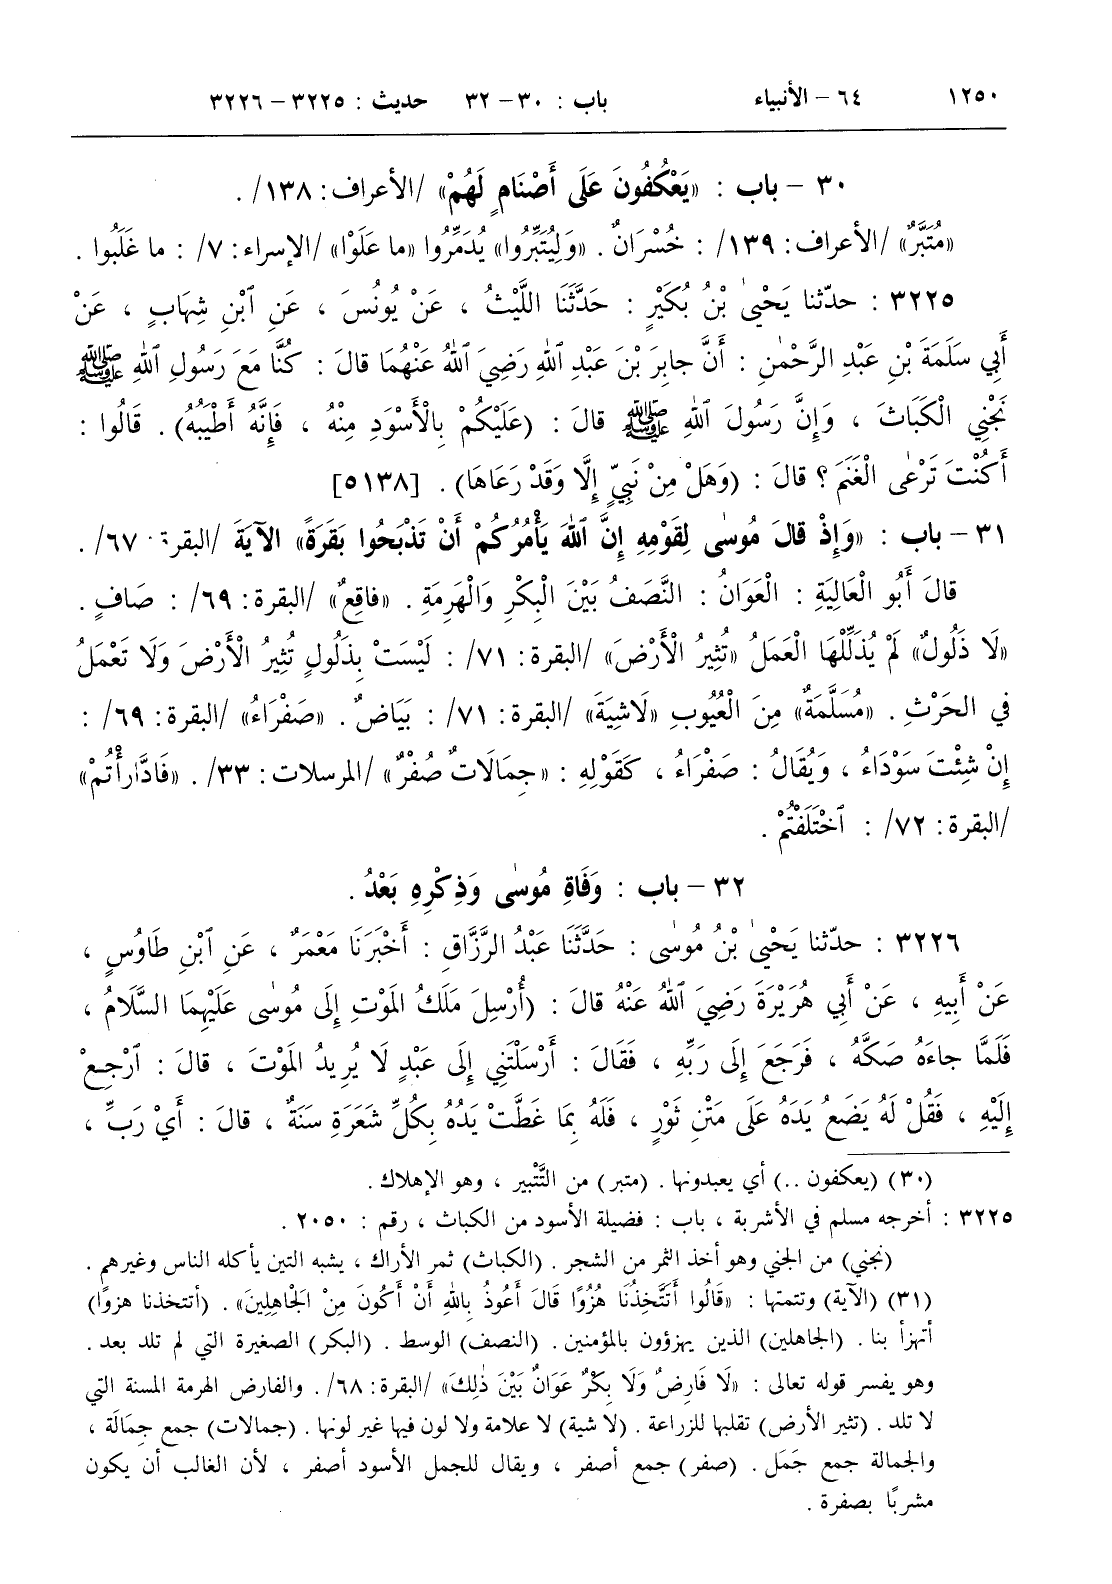 ١٢٥٠ ٦٤ - الأنبياء باب : ٣٠ - ٣٢ حديث : ٣٢٢٥ - ٣٢٢٦
٣٠ - باب : «يَعْكُفُونَ عَلَى أَصْنَامٍ لَهُمْ» /الأعراف: ١٣٨/ .
«مُتَبَّرٌ» /الأعراف: ١٣٩/ : خُسْرَانٌ . «وَلِيُتَبِّرُوا» يُدَمِّرُوا «ما عَلَوْا» /الإسراء: ٧/ : ما غَلَبُوا .
٣٢٢٥ : حدّثنا يَحْيىٰ بْنُ بُكَيْرٍ : حَدَّثَنَا اللَّيْثُ ، عَنْ يُونُسَ ، عَنِ ٱبْنِ شِهَابٍ ، عَنْ
أَبِي سَلَمَةَ بْنِ عَبْدِ الرَّحْمٰنِ : أَنَّ جابِرَ بْنَ عَبْدِ ٱللهِ رَضِيَ ٱللهُ عَنْهُمَا قالَ : كُنَّا مَعَ رَسُولِ ٱللهِ ﷺ
نَجْنِي الْكَبَاثَ ، وَإِنَّ رَسُولَ ٱللهِ ﷺ قالَ : (عَلَيْكُمْ بِالْأَسْوَدِ مِنْهُ ، فَإِنَّهُ أَطْيَبُهُ) . قَالُوا :
أَكُنْتَ تَرْعٰى الْغَنَمَ ؟ قالَ : (وَهَلْ مِنْ نَبِيٍّ إِلَّا وَقَدْ رَعَاهَا) . [٥١٣٨]
٣١ - باب : «وَإِذْ قالَ مُوسٰى لِقَوْمِهِ إِنَّ ٱللهَ يَأْمُرُكُمْ أَنْ تَذْبَحُوا بَقَرَةً» الآيَةَ /البقرة: ٦٧/ .
قالَ أَبُو الْعَالِيَةِ : الْعَوَانُ : النَّصَفُ بَيْنَ الْبِكْرِ وَالْهَرِمَةِ . «فاقِعٌ» /البقرة: ٦٩/ : صَافٍ .
«لَا ذَلُولٌ» لَمْ يُذَلِّلْهَا الْعَمَلُ «تُثِيرُ الْأَرْضَ» /البقرة: ٧١/ : لَيْسَتْ بِذَلُولٍ تُثِيرُ الْأَرْضَ وَلَا تَعْمَلُ
في الحَرْثِ . «مُسَلَّمَةٌ» مِنَ الْعُيُوبِ «لَاشِيَةَ» /البقرة: ٧١/ : بَيَاضٌ . «صَفْرَاءُ» /البقرة: ٦٩/ :
إِنْ شِئْتَ سَوْدَاءُ ، وَيُقَالُ : صَفْرَاءُ ، كَقَوْلِهِ : «جِمَالَاتٌ صُفْرٌ» /المرسلات: ٣٣/ . «فَادَّارَأْتُمْ»
/البقرة: ٧٢/ : ٱخْتَلَفْتُمْ .
٣٢ - باب : وَفَاةِ مُوسٰى وَذِكْرِهِ بَعْدُ .
٣٢٢٦ : حدّثنا يَحْيىٰ بْنُ مُوسٰى : حَدَّثَنَا عَبْدُ الرَّزَّاقِ : أَخْبَرَنَا مَعْمَرٌ ، عَنِ ٱبْنِ طَاوُسٍ ،
عَنْ أَبِيهِ ، عَنْ أَبِي هُرَيْرَةَ رَضِيَ ٱللهُ عَنْهُ قالَ : (أُرْسِلَ مَلَكُ المَوْتِ إِلَى مُوسٰى عَلَيْهِمَا السَّلَامُ ،
فَلَمَّا جاءَهُ صَكَّهُ ، فَرَجَعَ إِلَى رَبِّهِ ، فَقَالَ : أَرْسَلْتَنِي إِلَى عَبْدٍ لَا يُرِيدُ المَوْتَ ، قالَ : ٱرْجِعْ
إِلَيْهِ ، فَقُلْ لَهُ يَضَعُ يَدَهُ عَلَى مَتْنِ ثَوْرٍ ، فَلَهُ بِمَا غَطَّتْ يَدُهُ بِكُلِّ شَعَرَةٍ سَنَةٌ ، قالَ : أَيْ رَبِّ ،
(٣٠) (يعكفون ..) أي يعبدونها . (متبر) من التَّتْبِير ، وهو الإهلاك .
٣٢٢٥ : أخرجه مسلم في الأشربة ، باب : فضيلة الأسود من الكباث ، رقم : ٢٠٥٠ .
(نجني) من الجني وهو أخذ الثمر من الشجر . (الكباث) ثمر الأراك ، يشبه التين يأكله الناس وغيرهم .
(٣١) (الآية) وتتمتها : «قَالُوا أَتَتَّخِذُنَا هُزُوًا قَالَ أَعُوذُ بِاللهِ أَنْ أَكُونَ مِنَ الجَاهِلِينَ» . (أتتخذنا هزوًا)
أتهزأ بنا . (الجاهلين) الذين يهزؤون بالمؤمنين . (النصف) الوسط . (البكر) الصغيرة التي لم تلد بعد .
وهو يفسر قوله تعالى : «لَا فَارِضٌ وَلَا بِكْرٌ عَوَانٌ بَيْنَ ذٰلِكَ» /البقرة: ٦٨/ . والفارض الهرمة المسنة التي
لا تلد . (تثير الأرض) تقلبها للزراعة . (لا شية) لا علامة ولا لون فيها غير لونها . (جمالات) جمع جِمَالَة ،
والجمالة جمع جَمَل . (صفر) جمع أصفر ، ويقال للجمل الأسود أصفر ، لأن الغالب أن يكون
مشربًا بصفرة .